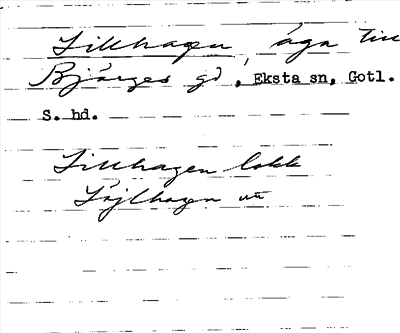 Lillhagen, äga till
Bjärges gd, Eksta sn, Gotl.
S. hd.
Lillhagen lokk
Läjlhagen utt